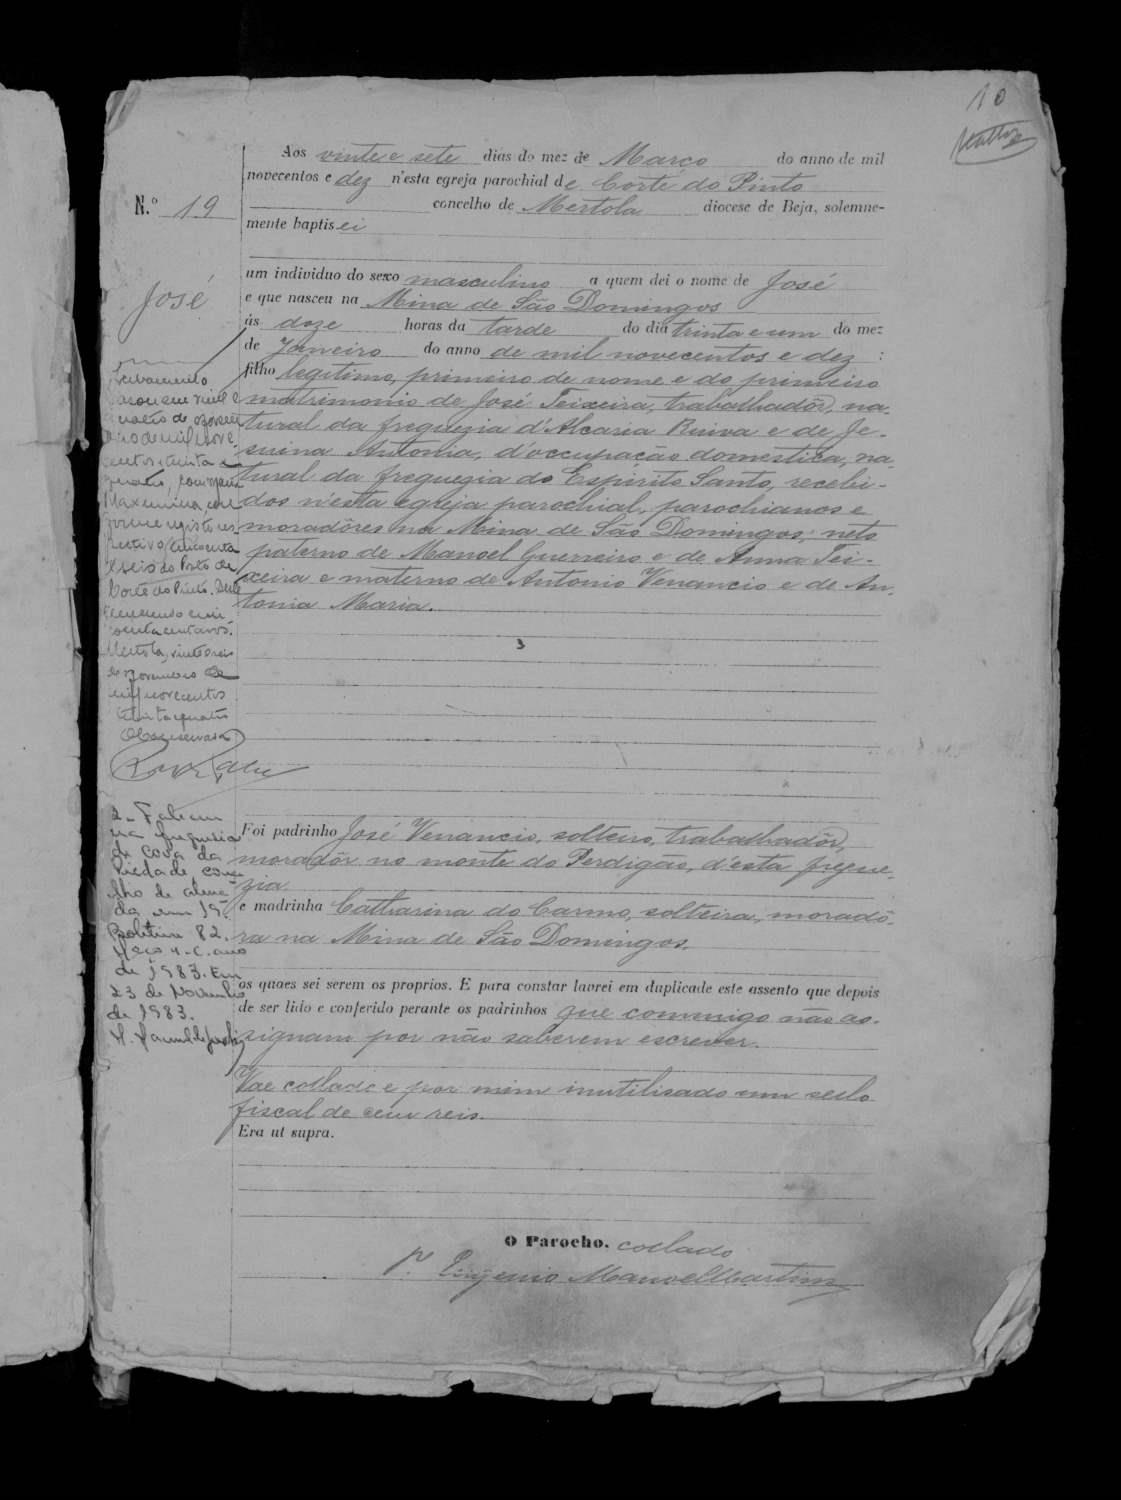 10
Aos vinte e sete dias do mez de Março do anno de mil
novecentos e dez n'esta egreja parochial de Corte do Pinto
N.º 19
concelho de Mertola diocese de Beja, solemne-
mente baptisei
um individuo do sexo masculino a quem dei o nome de José
José
e que nasceu na Mina de São Domingos
ás doze horas da tarde do dia trinta e um do mez
de Janeiro do anno de mil novecentos e dez :
filho legitimo, primeiro de nome e do primeiro
matrimonio de José Teixeira, trabalhadôr, na-
tural da freguezia d'Alcaria Ruiva e de Je-
suina Antonia, d'occupação domestica, na-
tural da freguezia do Espirito Santo, recebi-
dos n'esta egreja parochial, parochianos e
moradôres na Mina de São Domingos; neto
paterno de Manoel Guerreiro e de Anna Tei-
xeira e materno de Antonio Venancio e de An-
tonia Maria.
Casamento
mil
de
de mil nove
centos e trinta e
quatro, com
Maximina
cincoenta
e seis do Posto de
Corte do Pinto.
Mertola, vinte e seis
de novembro de
mil novecentos
trinta e quatro
2- Faleceu
na freguesia
de Cova da
Piedade conce-
lho de Alma-
da em 19.
82.
ano
de 1983. Em
23 de Novembro
de 1983.
Foi padrinho José Venancio, solteiro, trabalhadôr,
moradôr no monte do Perdigão, d'esta fregue-
zia
e madrinha Catharina do Carmo, solteira, moradô-
ra na Mina de São Domingos.
os quaes sei serem os proprios. E para constar lavrei em duplicade este assento que depois
de ser lido e conferido perante os padrinhos que commigo não as-
signam por não saberem escrever.
Vae collado e por mim inutilisado um sello
fiscal de cem reis.
Era ut supra.
O Parocho, collado
P. Eugenio Manoel Martins